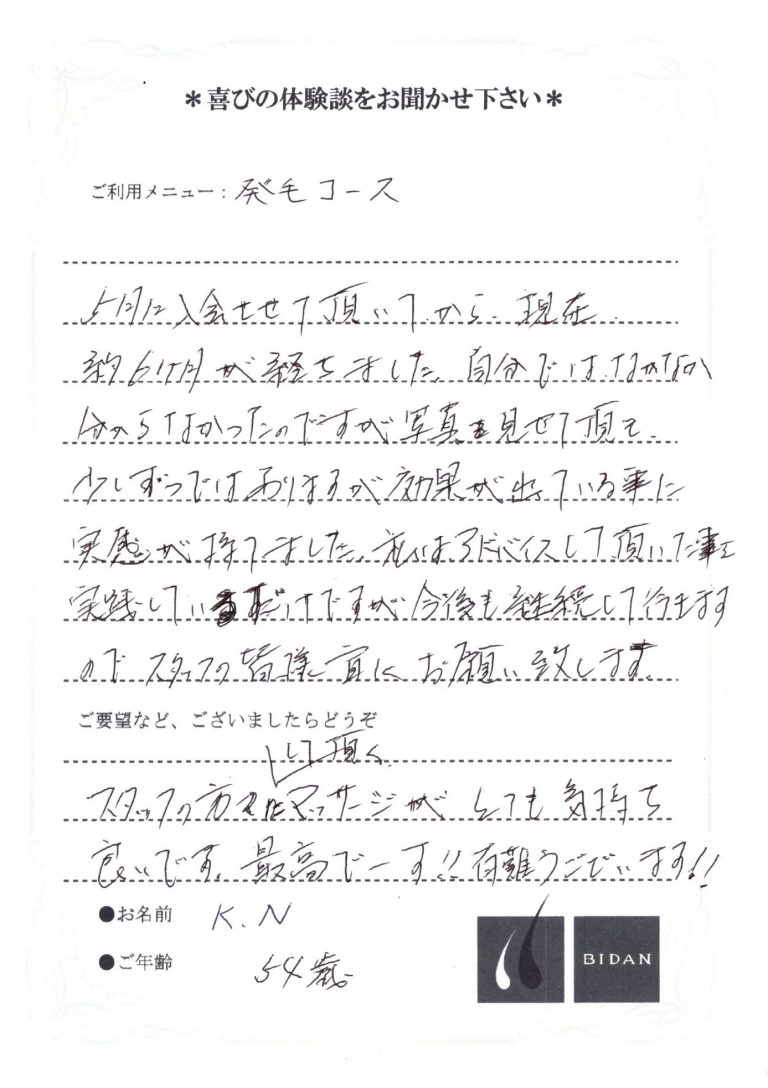 ＊喜びの体験談をお聞かせ下さい＊
ご利用メニュー：発毛コース
5月に入会させて頂いてから、現在
約6ヶ月が経ちました。自分では、なかなか
分からなかったのですが写真を見せて頂き、
少しずつではありますが効果が出ている事に
実感が持てました。私はアドバイスして頂いた事を
実践しているだけですが今後も継続して行きます
のでスタッフの皆様宜しくお願い致します。
ご要望など、ございましたらどうぞ
して頂く
スタッフの方々にマッサージが とても気持ち
良いです。最高でーす!!有難うございます!!
●お名前 K.N
●ご年齢 54歳
BIDAN